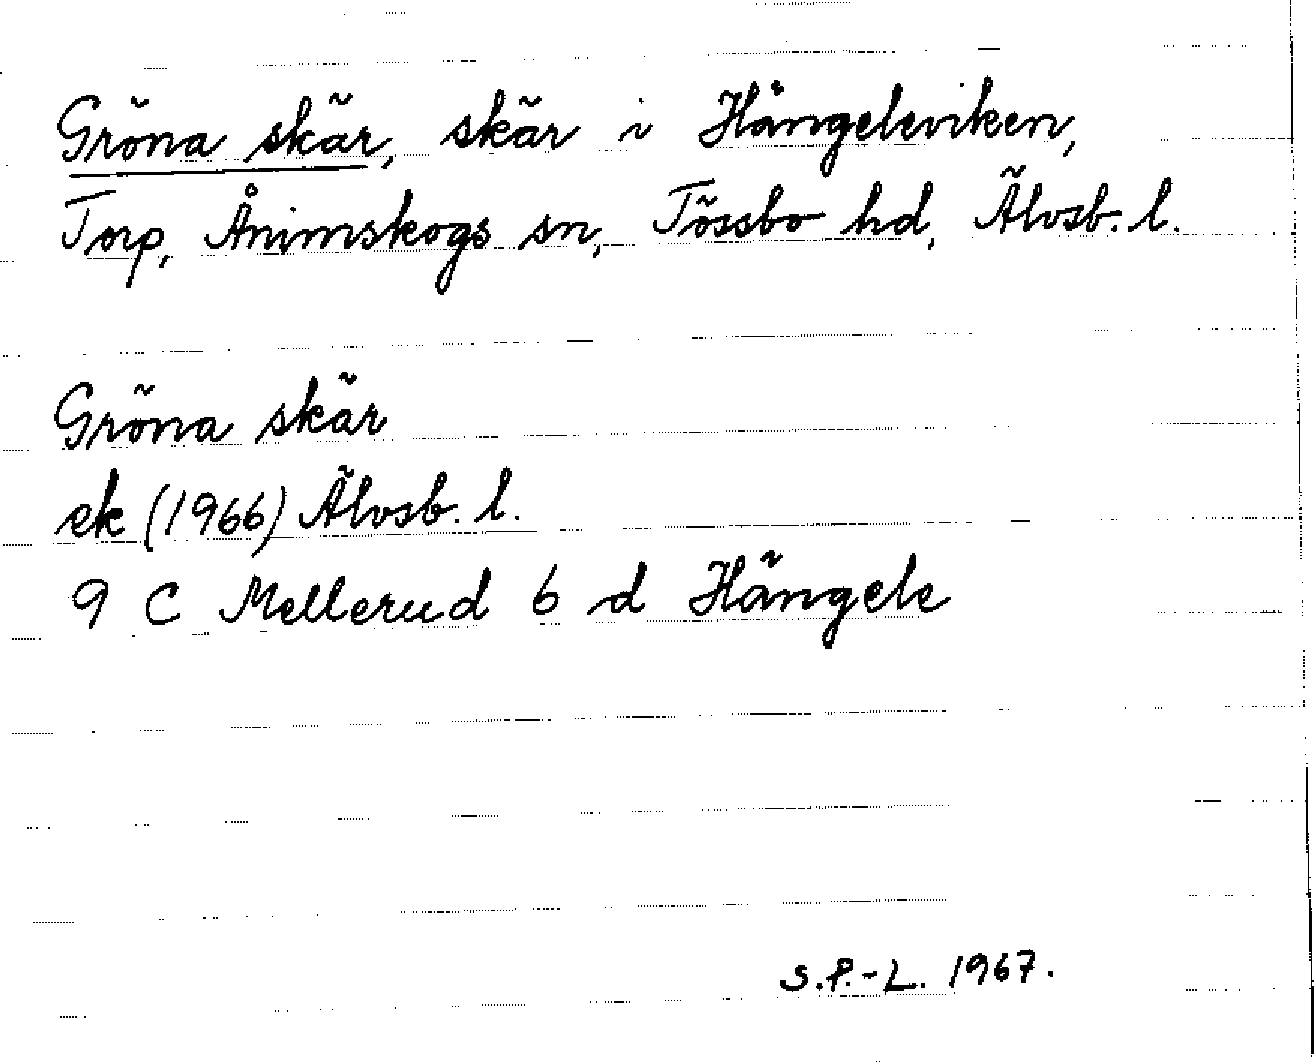 Gröna skär, skär i Hängeleviken,
Torp, Ånimskogs sn, Tössbo hd, Älvsb. l.
Gröna skär
ek (1966) Älvsb. l.
9 C Mellerud 6 d Hängele
S.P.-L. 1967.